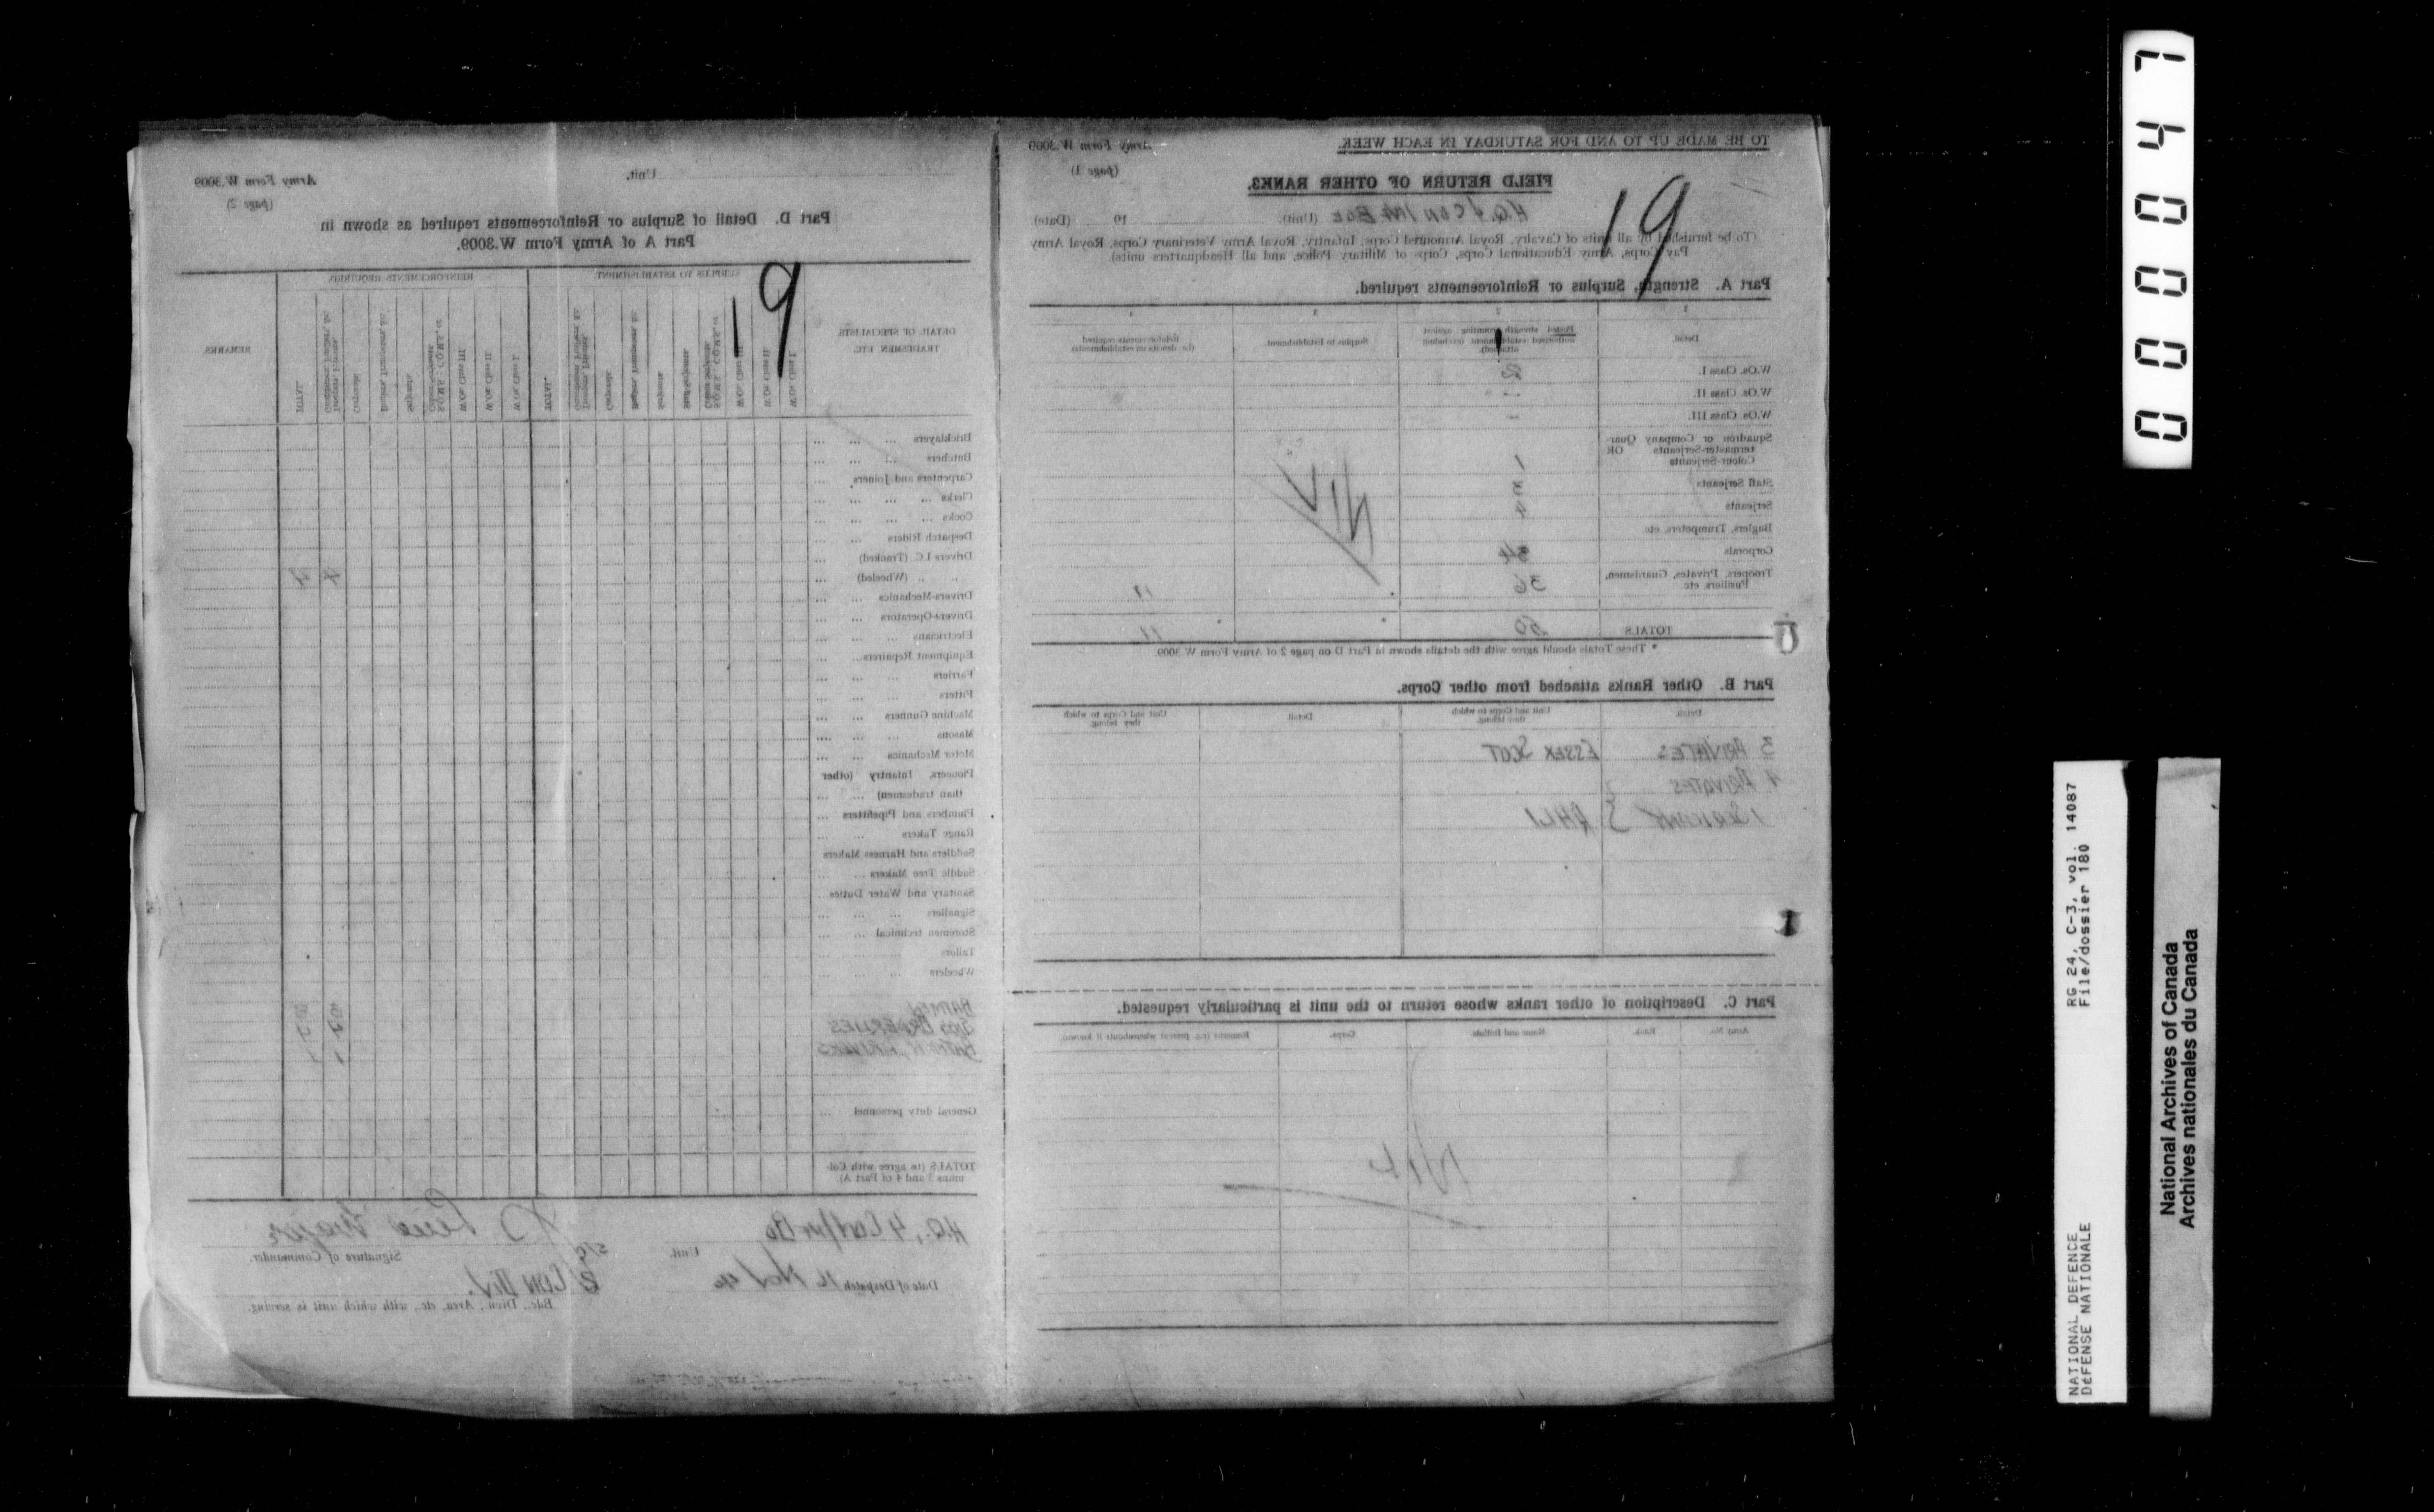 TO BE MADE UP TO AND FOR SATURDAY IN EACH WEEK.
Army Form W.3009
(page 1)
FIELD RETURN OF OTHER RANKS.
19
(Unit) 19 (Date)
(To be furnished by all units of Cavalry, Royal Armoured Corps, Infantry, Royal Army Veterinary Corps, Royal Army
Pay Corps, Army Educational Corps, Corps of Military Police, and all Headquarters units)
Part A. Strength, Surplus or Reinforcements required.
1 2 3 4
Detail.
Posted strength counting against
authorised establishment (excluding
attached).
Surplus to Establishment.
Reinforcements required
(i.e. deficits on establishments)
W.Os. Class I. 2
W.Os. Class II.
W.Os. Class III.
Squadron or Company Quar-
termaster-Serjeants OR
Colour-Serjeants 1
Staff Serjeants 3
Serjeants 4
Buglers, Trumpeters, etc.
Corporals
Troopers, Privates, Guardsmen,
Fusiliers, etc. 36 11
NIL
TOTALS 50 11
* These Totals should agree with the details shown in Part D on page 2 of Army Form W.3009.
Part B. Other Ranks attached from other Corps.
Detail.
Unit and Corps to which
they belong.
Detail
Unit and Corps to which
they belong.
3 PRIVATES ESSEX SCOT
4 PRIVATES
1 } RHLI
Part C. Description of other ranks whose return to the unit is particularly requested.
Army No. Rank. Name and Initials Corps. Remarks (e.g. general whereabouts if known).
NIL
Army Form W.3009
(page 2)
Unit.
Part D. Detail of Surplus or Reinforcements required as shown in
Part A of Army Form W.3009.
19
DETAIL OF SPECIALISTS
TRADESMEN, ETC.
SURPLUS TO ESTABLISHMENT.
REINFORCEMENTS REQUIRED.
REMARKS.
W.Os. Class I.
W.Os. Class II.
W.Os. Class III.
Staff-Serjeants
Serjeants
Corporals
TOTAL.
W.Os. Class I.
W.Os. Class II.
W.Os. Class III.
Serjeants
Corporals
TOTAL.
Bricklayers
Butchers
Carpenters and Joiners
Clerks
Cooks
Despatch Riders
Drivers I.C. (Tracked)
" " (Wheeled) 4 4
Drivers-Mechanics
Drivers-Operators
Electricians
Equipment Repairers
Farriers
Fitters
Machine Gunners
Masons
Motor Mechanics
Pioneers, Infantry (other
than tradesmen)
Plumbers and Pipefitters
Range Takers
Saddlers and Harness Makers
Saddle Tree Makers
Sanitary and Water Duties
Signallers
Storemen technical
Tailors
Wheelers
BATMEN
General duty personnel
TOTALS (to agree with Col-
umns 3 and 4 of Part A)
Unit.
Major
Signature of Commander.
Date of Despatch 16 Nov 40
2 CDN DIV.
Bde., Divn., Area, etc., with which unit is serving.
000047
NATIONAL DEFENCE RG 24, C-3, vol. 14087
DÉFENSE NATIONALE File/dossier 180
National Archives of Canada
Archives nationales du Canada